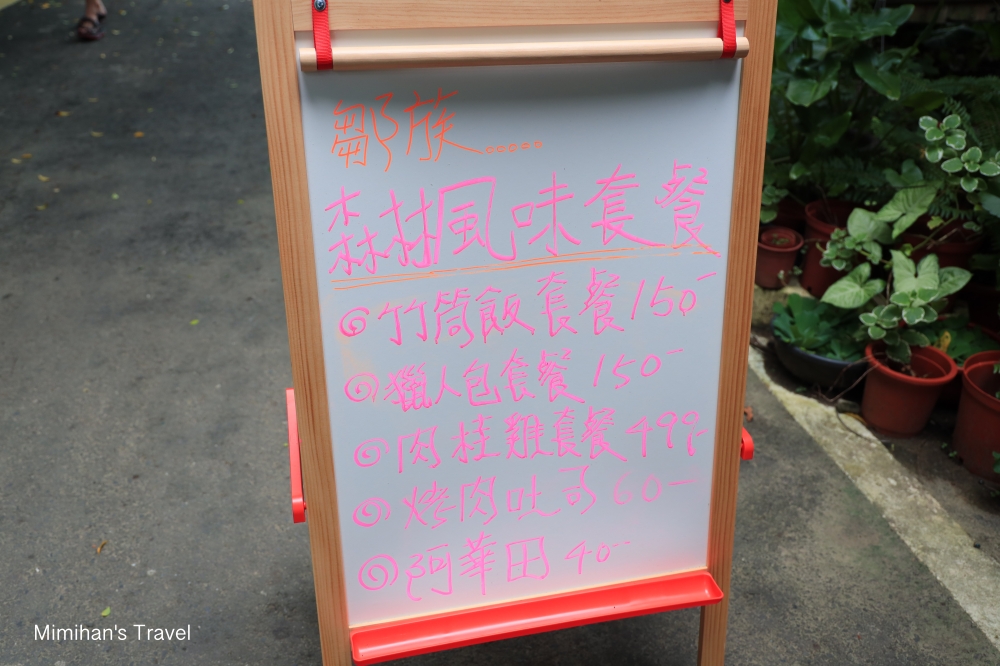 鄒族.....
森林風味套餐
竹筒飯套餐150-
獵人包套餐150-
肉桂雞套餐499-
烤肉吐司60-
阿華田40--
Mimihan's Travel